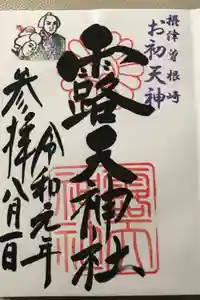 摂津曽根崎
お初天神
露天神社
令和元年
八月一日
参拝